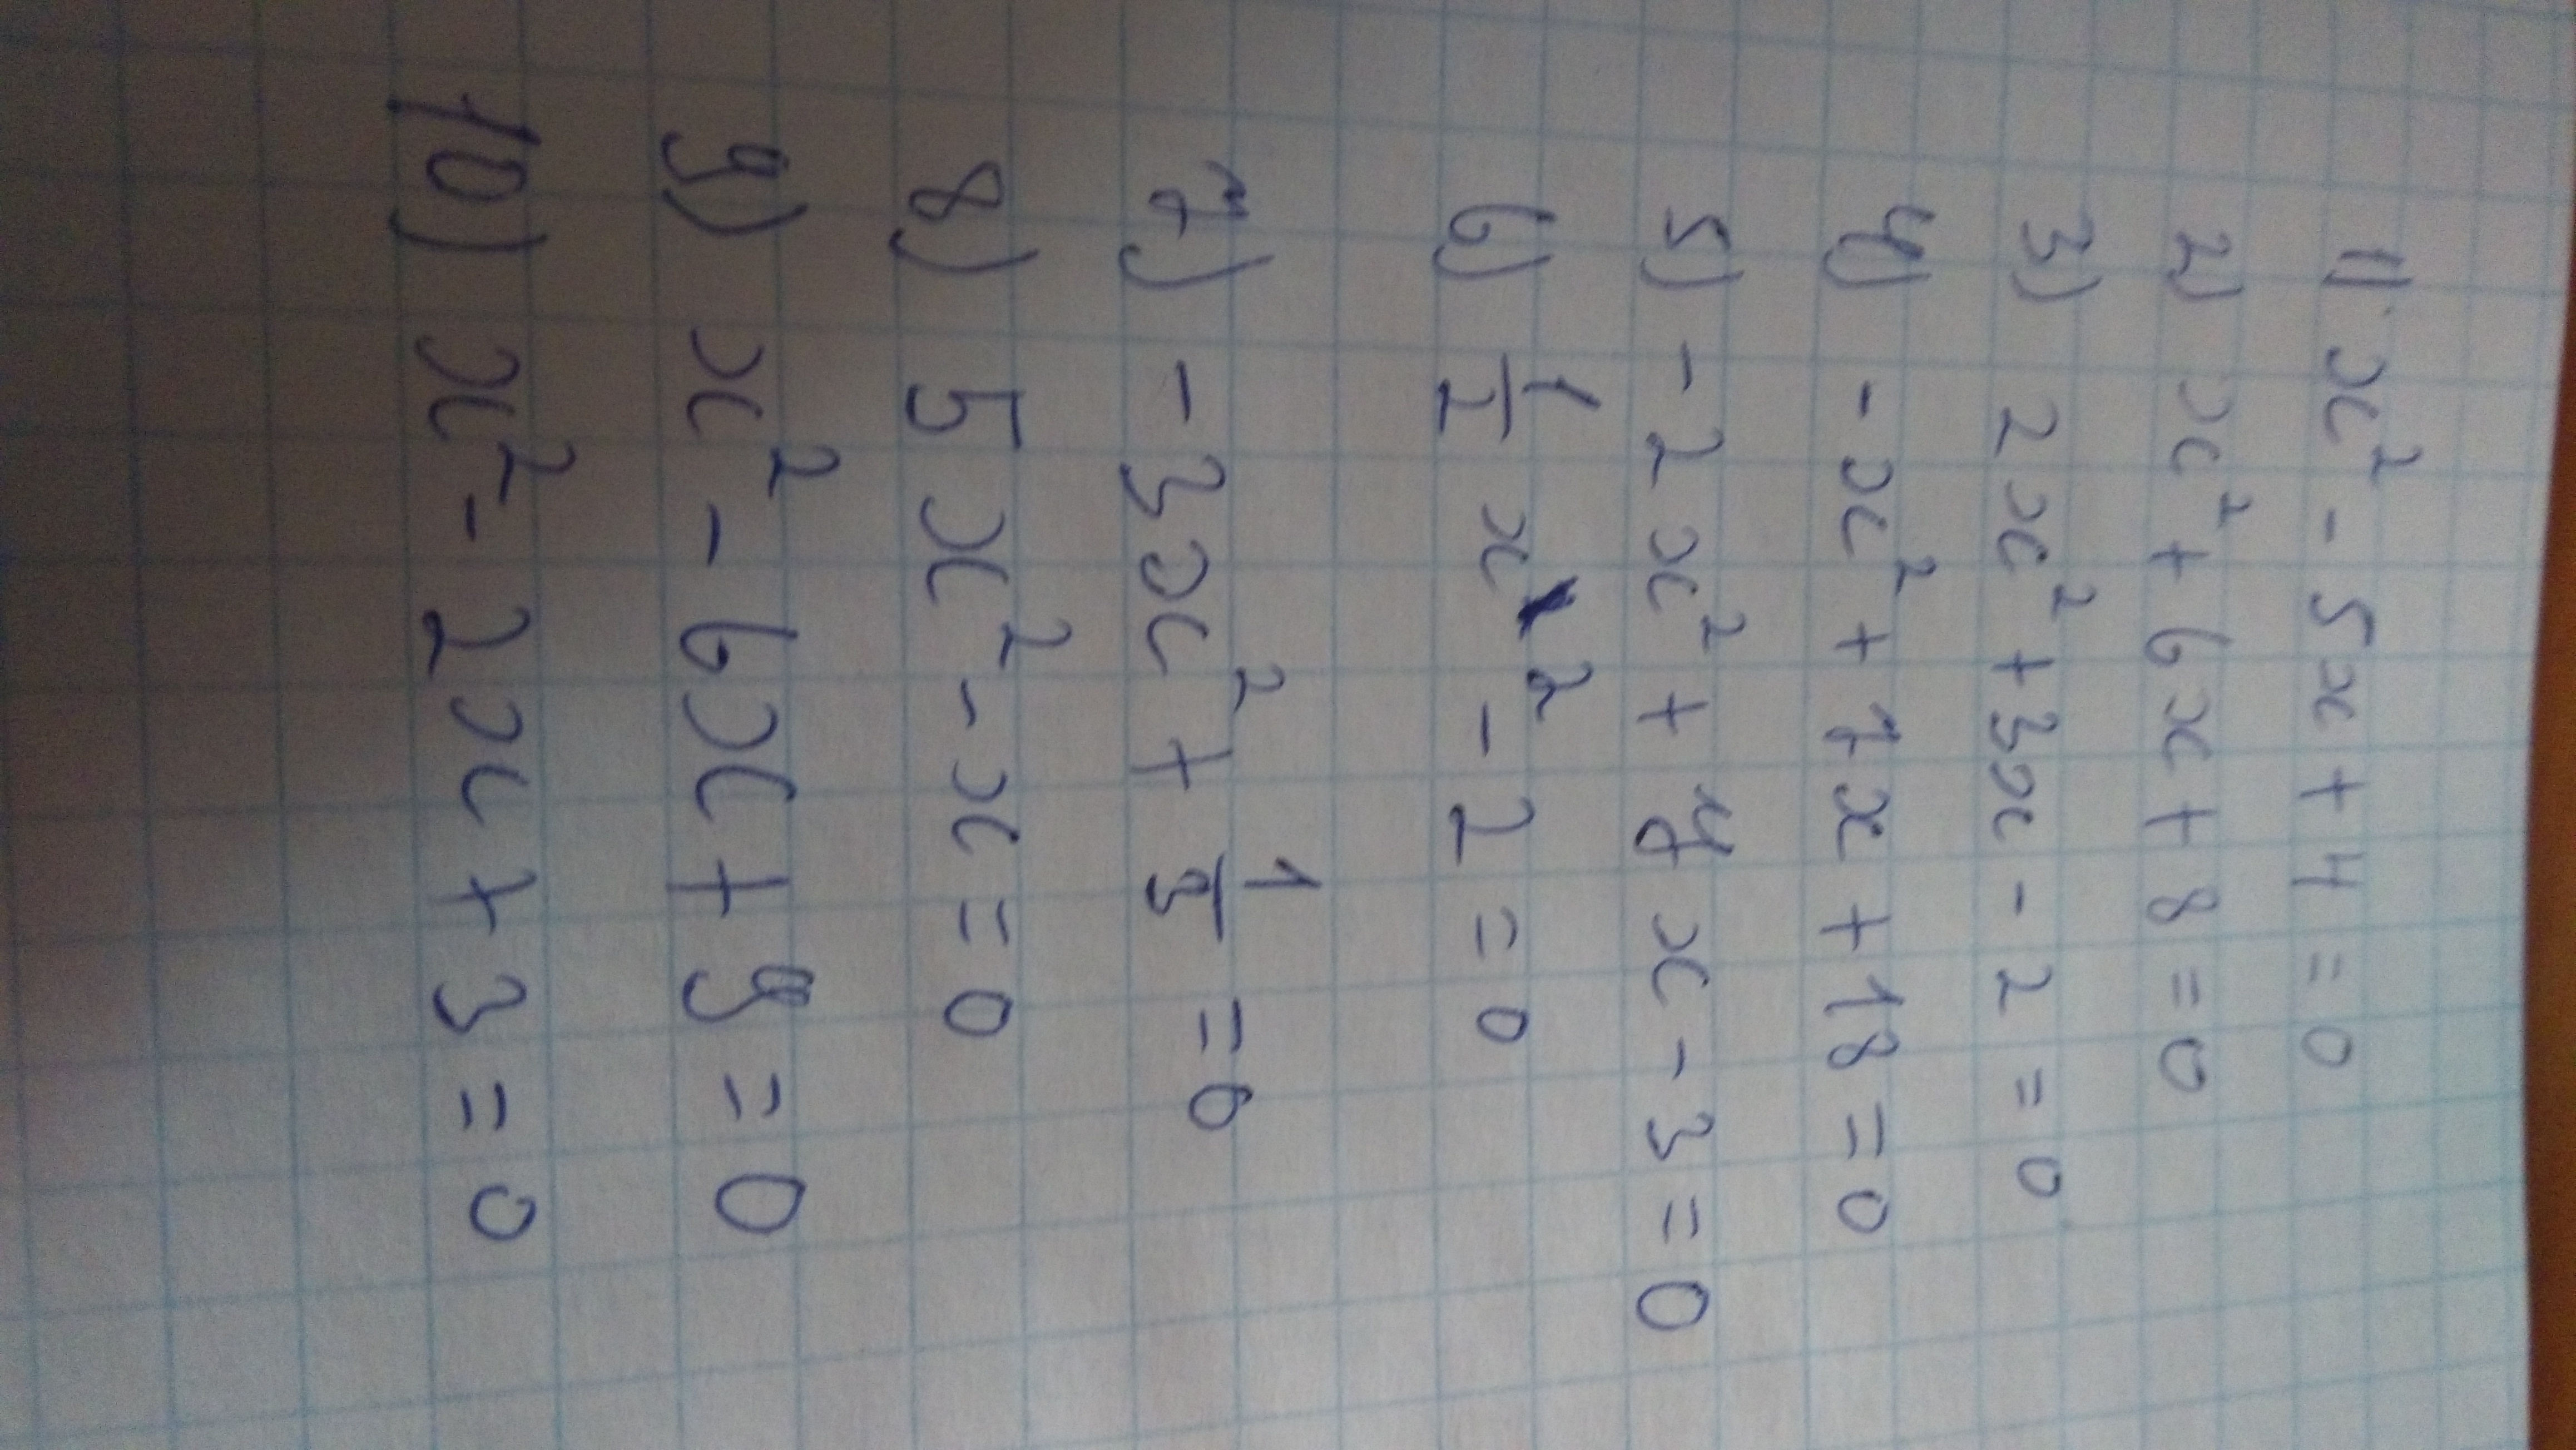 1) x² - 5x + 4 = 0
2) x² + 6x + 8 = 0
3) 2x² + 3x - 2 = 0
4) -x² + 7x + 18 = 0
5) -2x² + yx - 3 = 0
6) 1/2 x² - 2 = 0
7) -3x² + 1/3 = 0
8) 5x² - x = 0
9) x² - 6x + 9 = 0
10) x² - 2x + 3 = 0